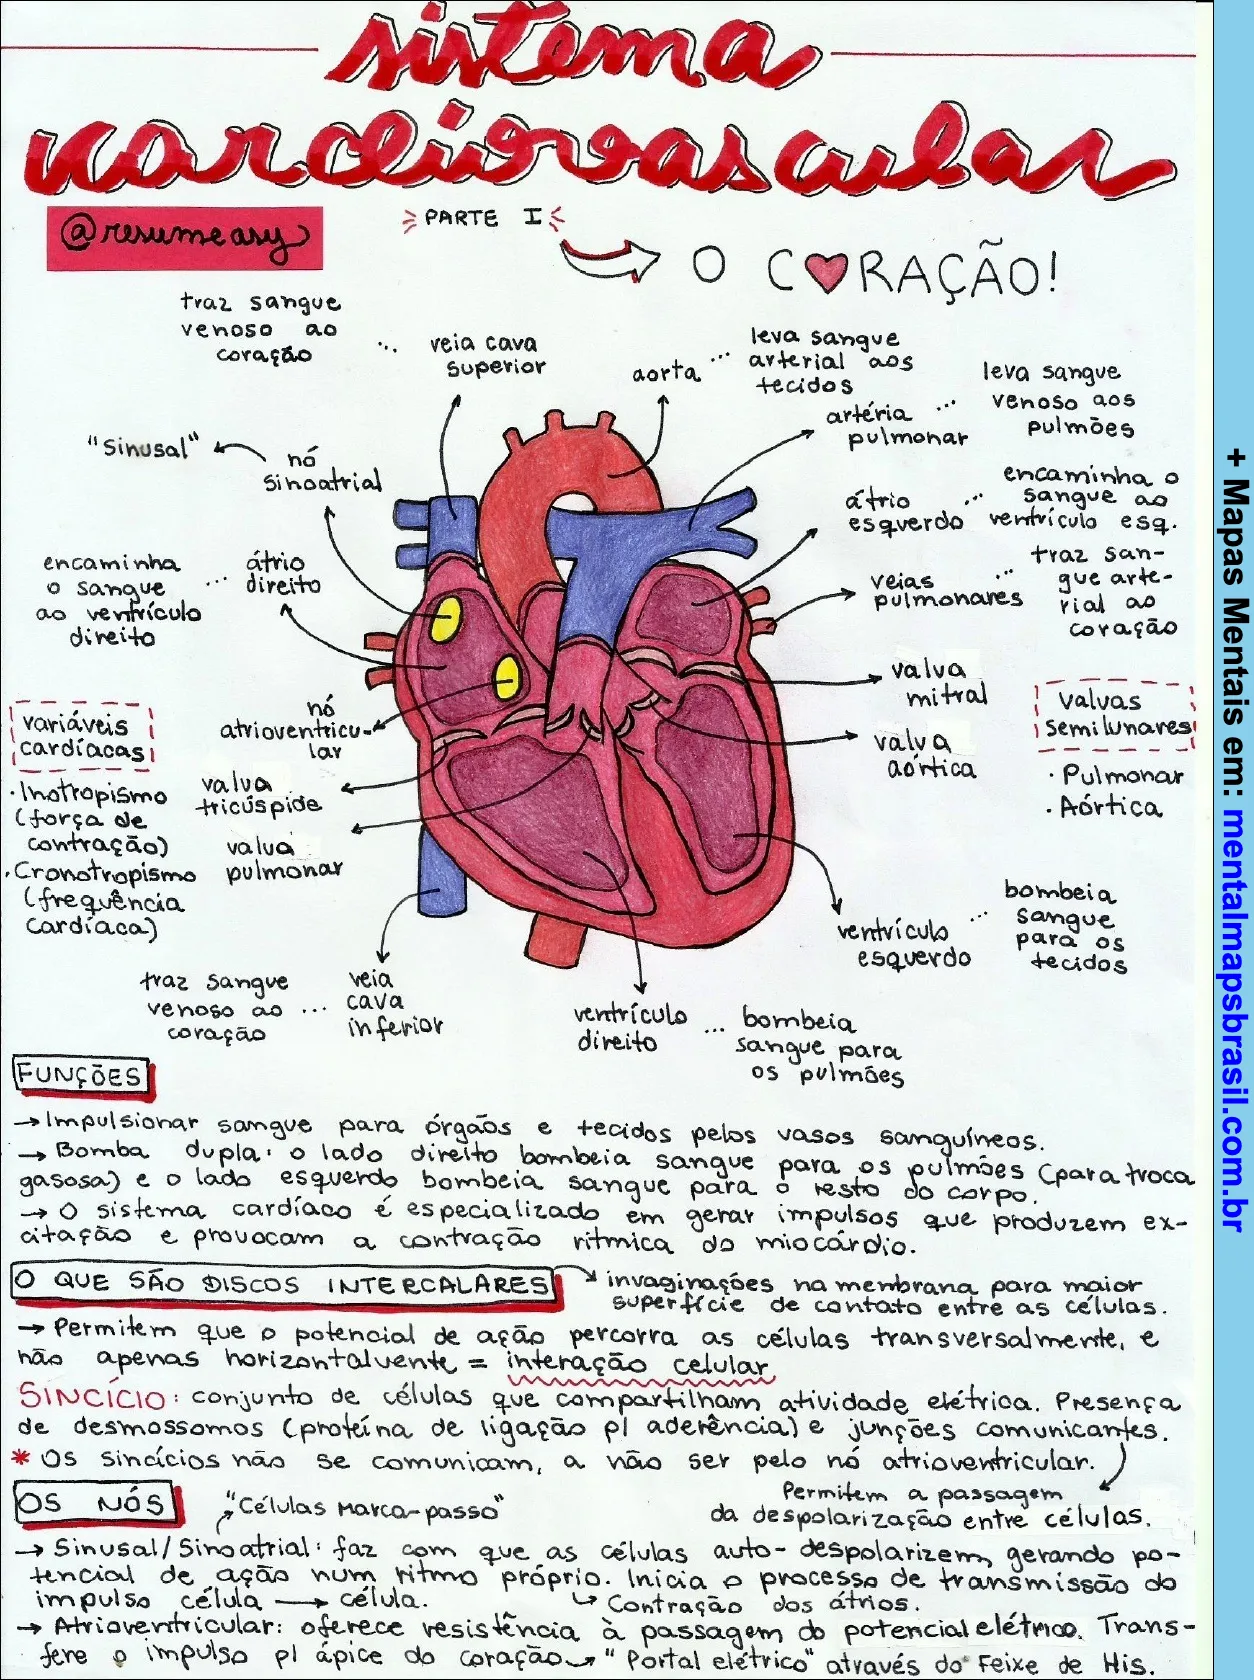 sistema
cardiovascular
@resumeasy
PARTE I
O CORAÇÃO!
traz sangue
venoso ao
coração
...
veia cava
superior
aorta
...
leva sangue
arterial aos
tecidos
artéria
pulmonar
...
leva sangue
venoso aos
pulmões
"Sinusal"
nó
sinoatrial
átrio
esquerdo
...
encaminha o
sangue ao
ventrículo esq.
encaminha
o sangue
ao ventrículo
direito
...
átrio
direito
veias
pulmonares
...
traz san-
gue arte-
rial ao
coração
valva
mitral
valvas
semilunares
· Pulmonar
· Aórtica
variáveis
cardíacas
· Inotropismo
(força de
contração)
· Cronotropismo
(frequência
cardíaca)
nó
atrioventricu-
lar
valva
aórtica
valva
tricúspide
valva
pulmonar
ventrículo
esquerdo
...
bombeia
sangue
para os
tecidos
traz sangue
venoso ao
coração
...
veia
cava
inferior
ventrículo
direito
...
bombeia
sangue para
os pulmões
FUNÇÕES
→ Impulsionar sangue para órgãos e tecidos pelos vasos sanguíneos.
→ Bomba dupla: o lado direito bombeia sangue para os pulmões (para troca
gasosa) e o lado esquerdo bombeia sangue para o resto do corpo.
→ O sistema cardíaco é especializado em gerar impulsos que produzem ex-
citação e provocam a contração rítmica do miocárdio.
O QUE SÃO DISCOS INTERCALARES
invaginações na membrana para maior
superfície de contato entre as células.
→ Permitem que o potencial de ação percorra as células transversalmente, e
não apenas horizontalvente = interação celular
SINCÍCIO: conjunto de células que compartilham atividade elétrica. Presença
de desmossomos (proteína de ligação p/ aderência) e junções comunicantes.
* Os sincícios não se comunicam, a não ser pelo nó atrioventricular.
Permitem a passagem
da despolarização entre células.
OS NÓS
"Células Marca-passo"
→ Sinusal/Sinoatrial: faz com que as células auto-despolarizem, gerando po-
tencial de ação num ritmo próprio. Inicia o processo de transmissão do
impulso célula → célula.
↳ Contração dos átrios.
→ Atrioventricular: oferece resistência à passagem do potencial elétrico. Trans-
fere o impulso p/ ápice do coração → "Portal elétrico" através do Feixe de His.
+ Mapas Mentais em: mentalmapsbrasil.com.br